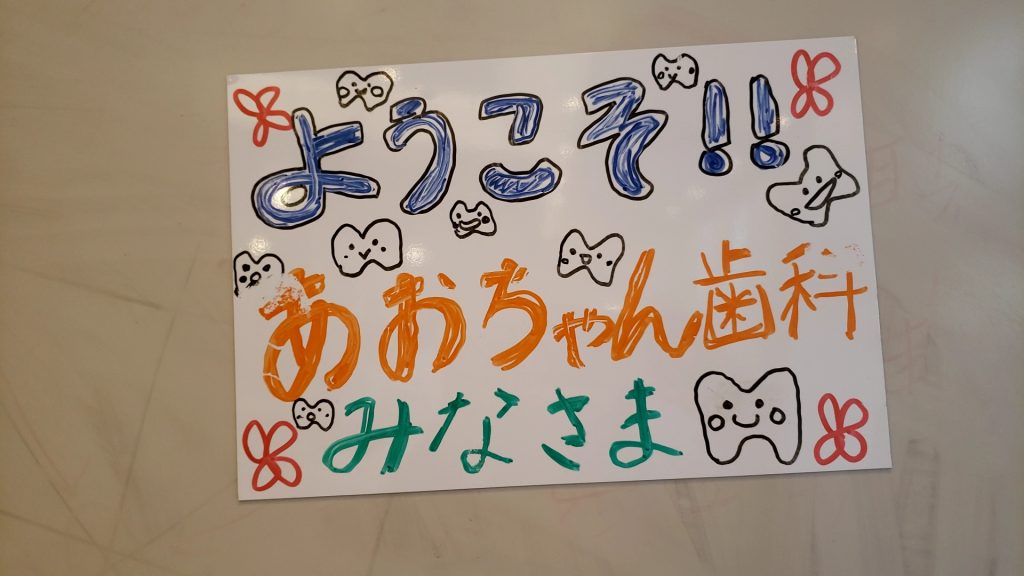 ようこそ!!
あおちゃん歯科
みなさま